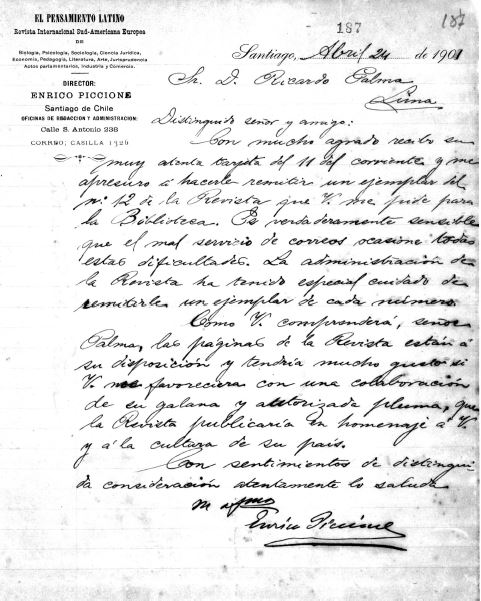 EL PENSAMIENTO LATINO
Revista Internacional Sud-Americana Europea
DE
Biología, Psicología, Sociología, Ciencia Jurídica,
Economía, Pedagogía, Literatura, Arte, Jurisprudencia
Actos parlamentarios, Industria y Comercio.
DIRECTOR:
ENRICO PICCIONE
Santiago de Chile
OFICINAS DE REDACCION Y ADMINISTRACION:
Calle S. Antonio 238
CORREO, CASILLA 1926
187
187
Santiago, Abril 24 de 1901
Sr. D. Ricardo Palma
Lima
Distinguido señor y amigo:
Con mucho agrado recibo su
muy atenta tarjeta del 11 del corriente y me
apresuro á hacerle remitir un ejemplar del
n.º 12 de la Revista que V. me pide para
la Biblioteca. Es verdaderamente sensible
que el mal servicio de correos ocasione todas
estas dificultades. La administración de
la Revista ha tenido especial cuidado de
remitirle un ejemplar de cada número.
Como V. comprenderá, señor
Palma, las páginas de la Revista están á
su disposición y tendría mucho gusto si
V. me favoreciera con una colaboración
de su galana y autorizada pluma, que
la Revista publicaría en homenaje á V.
y á la cultura de su país.
Con sentimientos de distingui
da consideración atentamente lo saluda
Enrico Piccione